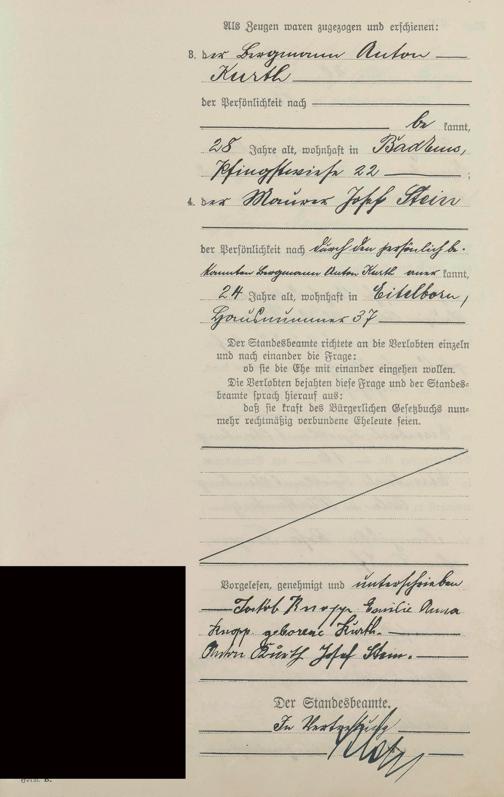 Als Zeugen waren zugezogen und erschienen:
3. der Bergmann Anton
Kurth
der Persönlichkeit nach
be kannt,
28 Jahre alt, wohnhaft in Bad Ems,
Pfingstwiese 22 ;
4. der Maurer Josef Stein
der Persönlichkeit nach durch den persönlich be-
kannten Bergmann Anton Kurth aner kannt,
24 Jahre alt, wohnhaft in Eitelborn,
Hausnummer 37
Der Standesbeamte richtete an die Verlobten einzeln
und nach einander die Frage:
ob sie die Ehe mit einander eingehen wollen.
Die Verlobten bejahten diese Frage und der Standes-
beamte sprach hierauf aus:
daß sie kraft des Bürgerlichen Gesetzbuchs nun-
mehr rechtmäßig verbundene Eheleute seien.
Vorgelesen, genehmigt und unterschrieben
Jakob Knopp Emilie Anna
Knopp geborene Kurth.
Anton Kurth Josef Stein.
Der Standesbeamte.
In Vertretung